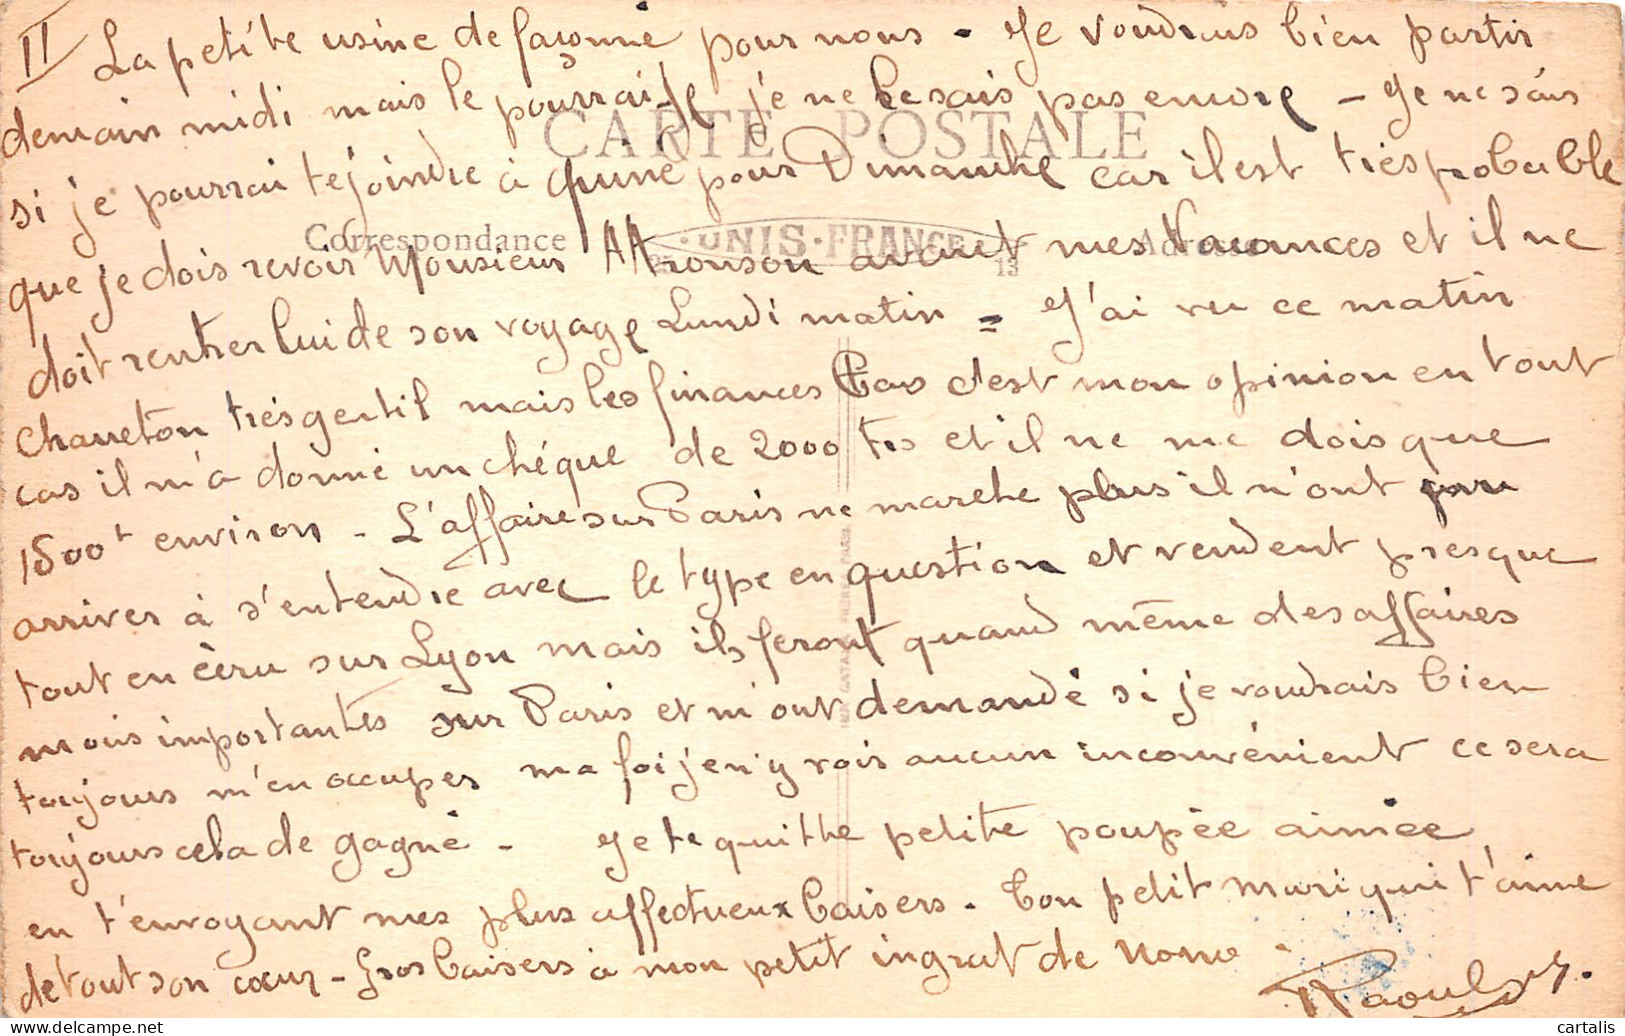 II La petite usine de façonné pour nous - Je voudrais bien partir
demain midi mais le pourrai-je je ne le sais pas encore - Je ne sais
CARTE POSTALE
si je pourrai te joindre à pour Dimanche car il est très probable
Correspondance UNIS-FRANCE Adresse
que je dois revoir Monsieur Aronson avant mes Vacances et il ne
doit rentrer lui de son voyage Lundi matin = J'ai vu ce matin
Charreton très gentil mais les finances bas c'est mon opinion en tout
cas il m'a donné un chéque de 2000 frs et il ne me dois que
1500f environ - L'affaire sur Paris ne marche plus il n'ont pu
arriver à s'entendre avec le type en question et vendent presque
tout en écru sur Lyon mais ils feront quand même des affaires
mois importantes sur Paris et m'ont demandé si je voudrais bien
toujours m'en occuper ma foi j'en y vois aucun inconvénient ce sera
toujours cela de gagné - Je te quitte petite poupée aimée
en t'envoyant mes plus affectueux baisers - Ton petit mari qui t'aime
de tout son cœur - Gros baisers à mon petit ingrat de Nono
Raoul
cartalis